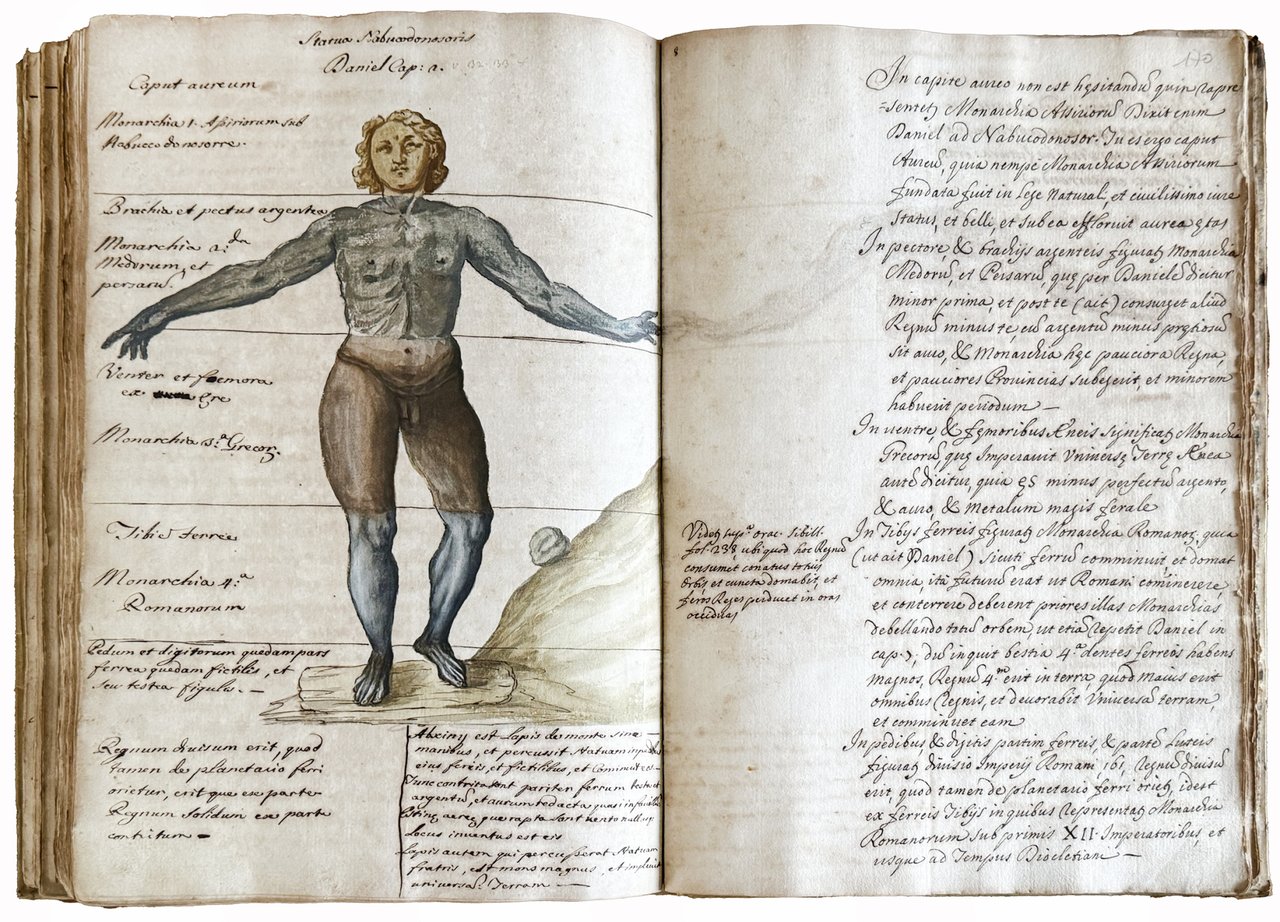 Statua Nabucodonosoris
Daniel Cap: 2.
Caput aureum
Monarchia 1. Assiriorum sub
Nabuccodonosorre.
Brachia et pectus argentea
Monarchia 2.da
Medorum, et
persarū.
Venter et foemora
ex ere
Monarchia 3.a Grecor.
Tibię ferreę
Monarchia 4.a
Romanorum
Pedum et digitorum quedam pars
ferrea quedam fictilis, et
seu testea figulis. —
Regnum divisum erit, quod
tamen de planetario ferri
orietur, erit que ex parte
Regnum solidum ex parte
contritum —
est Lapis de monte sine
manibus, et percusit statuam in
eius fereis, et fictilibus, et
Tunc contrita sunt pariter ferrum testa
argentū, et aurum redacta quasi in
ęstiuę aereę, que rapta sunt vento nullusq
Locus inventus est eis
Lapis autem qui percusserat statuam
est mons magnus, et
universā Terram —
8
170
In capite aureo non est hęsitandū quin rapre
=sentet Monarchia Assiriorū Dixit enim
Daniel ad Nabucodonosor. Tu es ergo caput
Aureū, quia nempe Monarchia Assiriorum
fundata fuit in Lege Natural, et civilissimo iure
Status, et belli, et sub ea effloruit aurea ętas
In pectore, & brachijs argenteis figurat Monarchia
Medorū, et Persarū, quę per Danielē dicitur
minor prima, et post te (ait) consurget aliud
Regnū minus te, cū argentū minus prętiosū
sit auro, & Monarchia hęc pauciora Regna,
et pauciores Provincias subegerit, et minorem
habuerit periodum —
In ventre, & fęmoribus Æneis significat Monarchia
Grecorū, quę Imperavit Universę Terrę Ænea
autē dicitur, quia ęs minus perfectū argento,
& auro, & Metalum magis ferale
In Tibijs ferreis figurat Monarchia Romanor, quia
(ut ait Daniel) sicuti ferrū comminuit et domat
omnia, ita futurū erat ut Romani cōminuere
et conterrere deberent priores illas Monarchias
debellando totū orbem, ut etiā repetit Daniel in
cap. 7, dū inquit bestia 4.a dentes ferreos habens
magnos, Regnū 4.m erit in terra, quod maius erit
omnibus Regnis, et devorabit Universā terram,
et comminuet eam
In pedibus & digitis partim ferreis, & partē Luteis
figurat divisio Imperij Romani, ibi, Regnū divisū
erit, quod tamen de planetario ferri oriet, idest
ex ferreis Tibijs in quibus representat Monarchia
Romanorum sub primis XII. Imperatoribus, et
usque ad Tempus Diocletiani —
Videt orac. Sibill.
fol. 238, ubi quod hoc Regnū
consumet conatus totius
Orbis, et cuncta domabit, et
feros Reges perducet in oras
occiduas